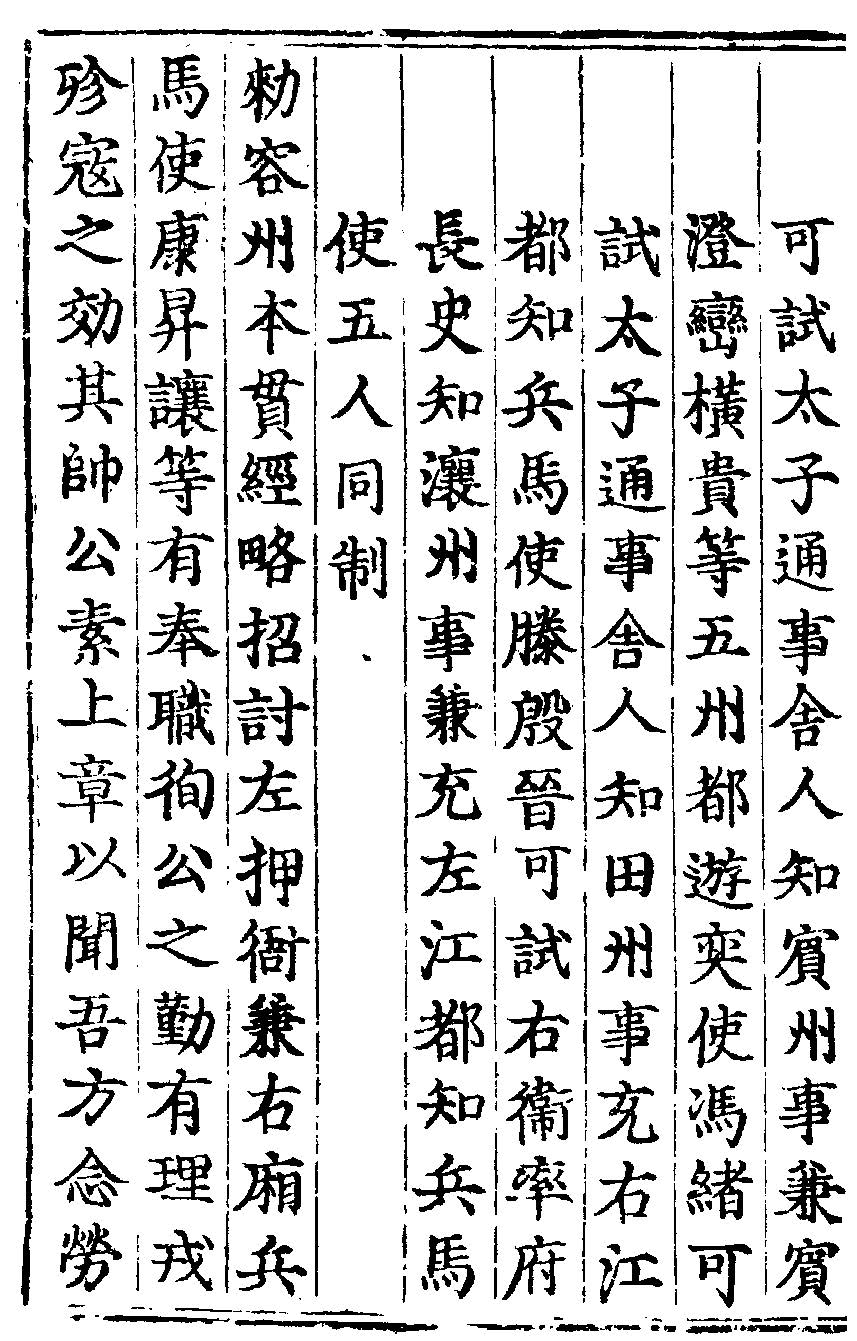 可試太子通事舎人知賔州事兼賔
澄巒橫貴等五州都遊奕使馮緒可
試太子通事舎人知田州事充右江
都知兵馬使滕殷晉可試右衞率府
長史知瀼州事兼充左江都知兵馬
使五人同制
勑容州本貫經略招討左押衙兼右廂兵
馬使康昇讓等有奉職徇公之勤有理戎
殄寇之効其帥公素上章以聞吾方念勞